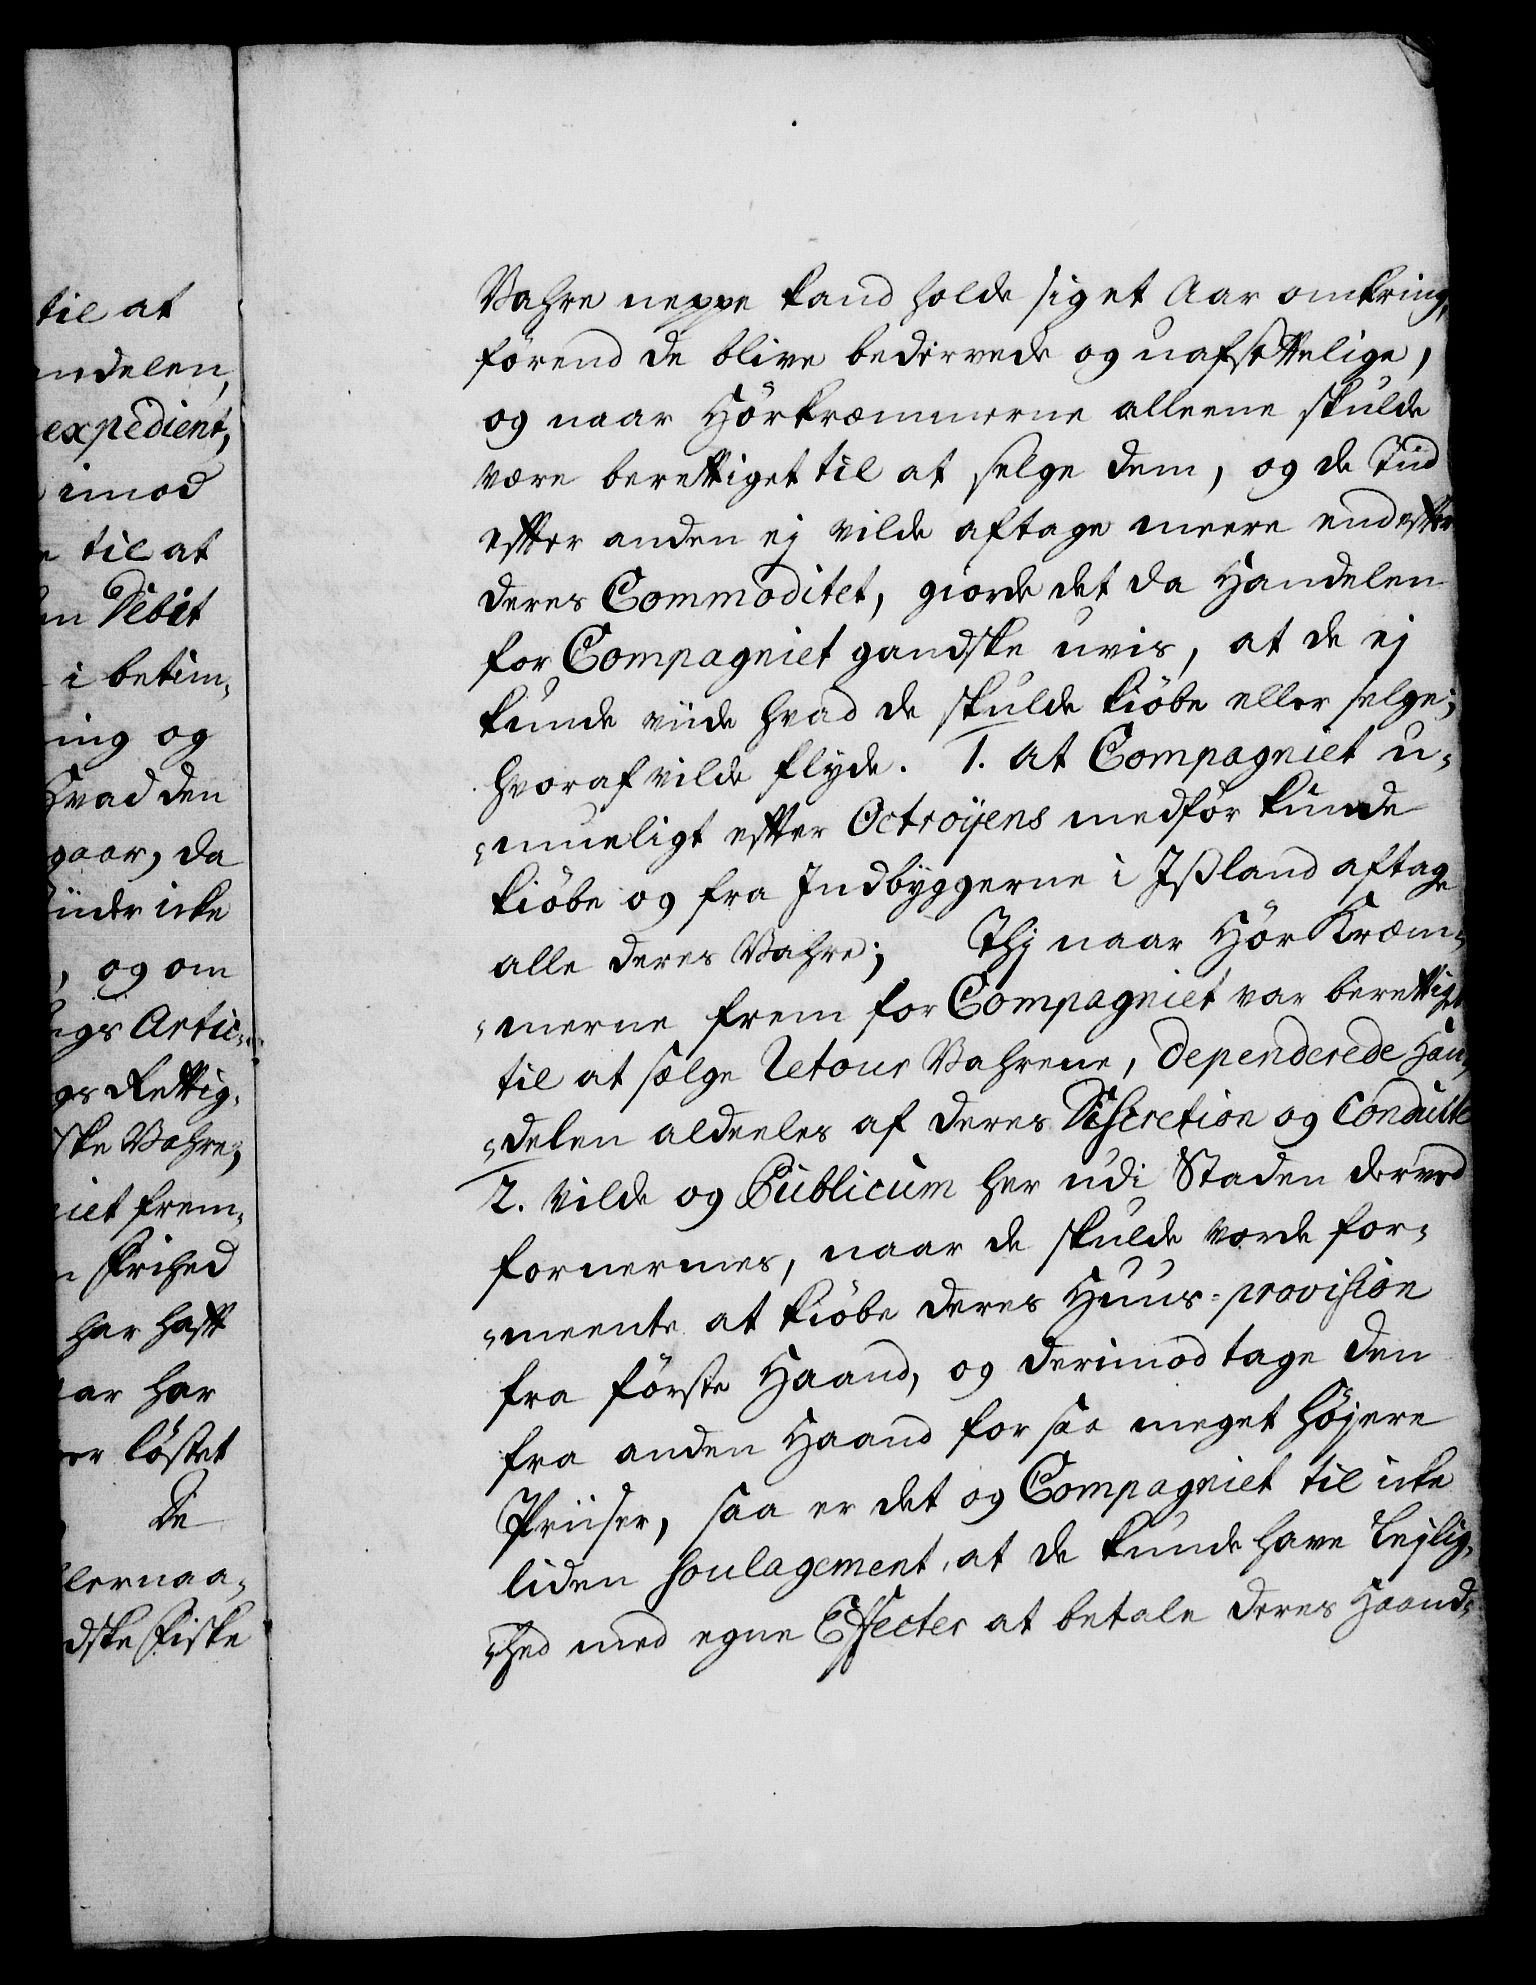 til at
ndelen,
expedient,
imod
til at
en Debit
i betim¬
ing og
Hvad den
gaar, da
icke
, og om
ngs Artic¬
gs Rettig¬
ske Vahre,
iet frem¬
n Frihed
har hafft
aar har
er löftet
De
lernaa¬
dske Fiske
Vahre neppe kand holde sig et Aar omkring,
förend de blive bedervede og uafsettelige,
og naar Hörkræmmerne alleene skulde
være berettiget til at selge dem, og de Tiid
effter anden ej vilde aftage meere end effter
deres Commoditet, giorde det da Handelen
for Compagniet gandske uvis, at de ej
kunde viide hvad de skulde kiöbe eller selge;
hvoraf vilde flyde. 1. at Compagniet u¬
mueligt effter Octroijens medför kunde
kiöbe og fra Indbyggerne i Jßland aftage
alle deres Vahre; Thj naar Hör Kræm¬
merne frem for Compagniet var berettiget
til at sælge Retour Vahrene, dependerede Han¬
delen aldeeles af deres Discretion og Conduitte
2. vilde og Publicum her udi Staden derved
fornermes, naar de skulde vorde for¬
meente at kiöbe deres Huus-provision
fra förste Haand, og derimod tage den
fra anden Haand for saa meget höjere
Priiser, saa er det og Compagniet til icke
liden soulagement, at de kunde have Lejlig¬
hed med egne Effecter at betale deres Haand¬